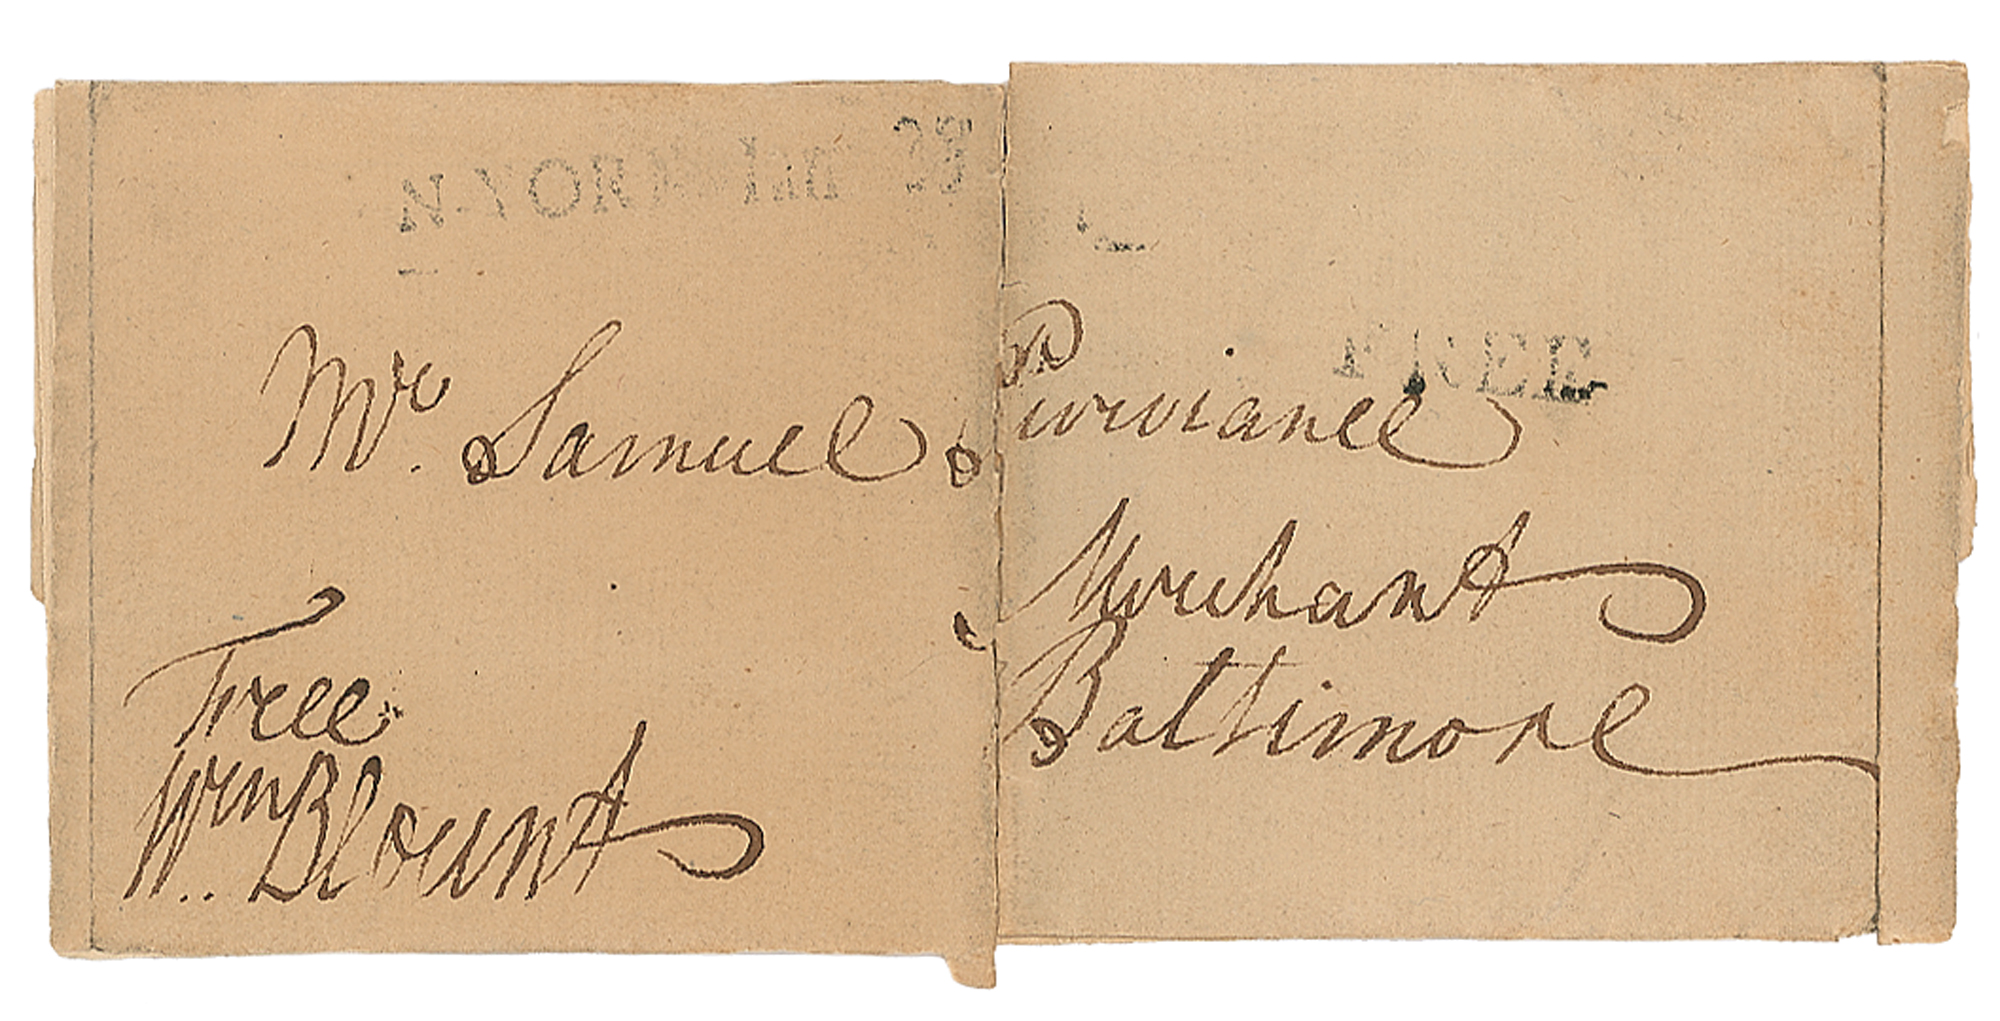 N-YORK
FREE
Mr. Samuel Purviance
Merchant
Baltimore
Free
Wm Blount